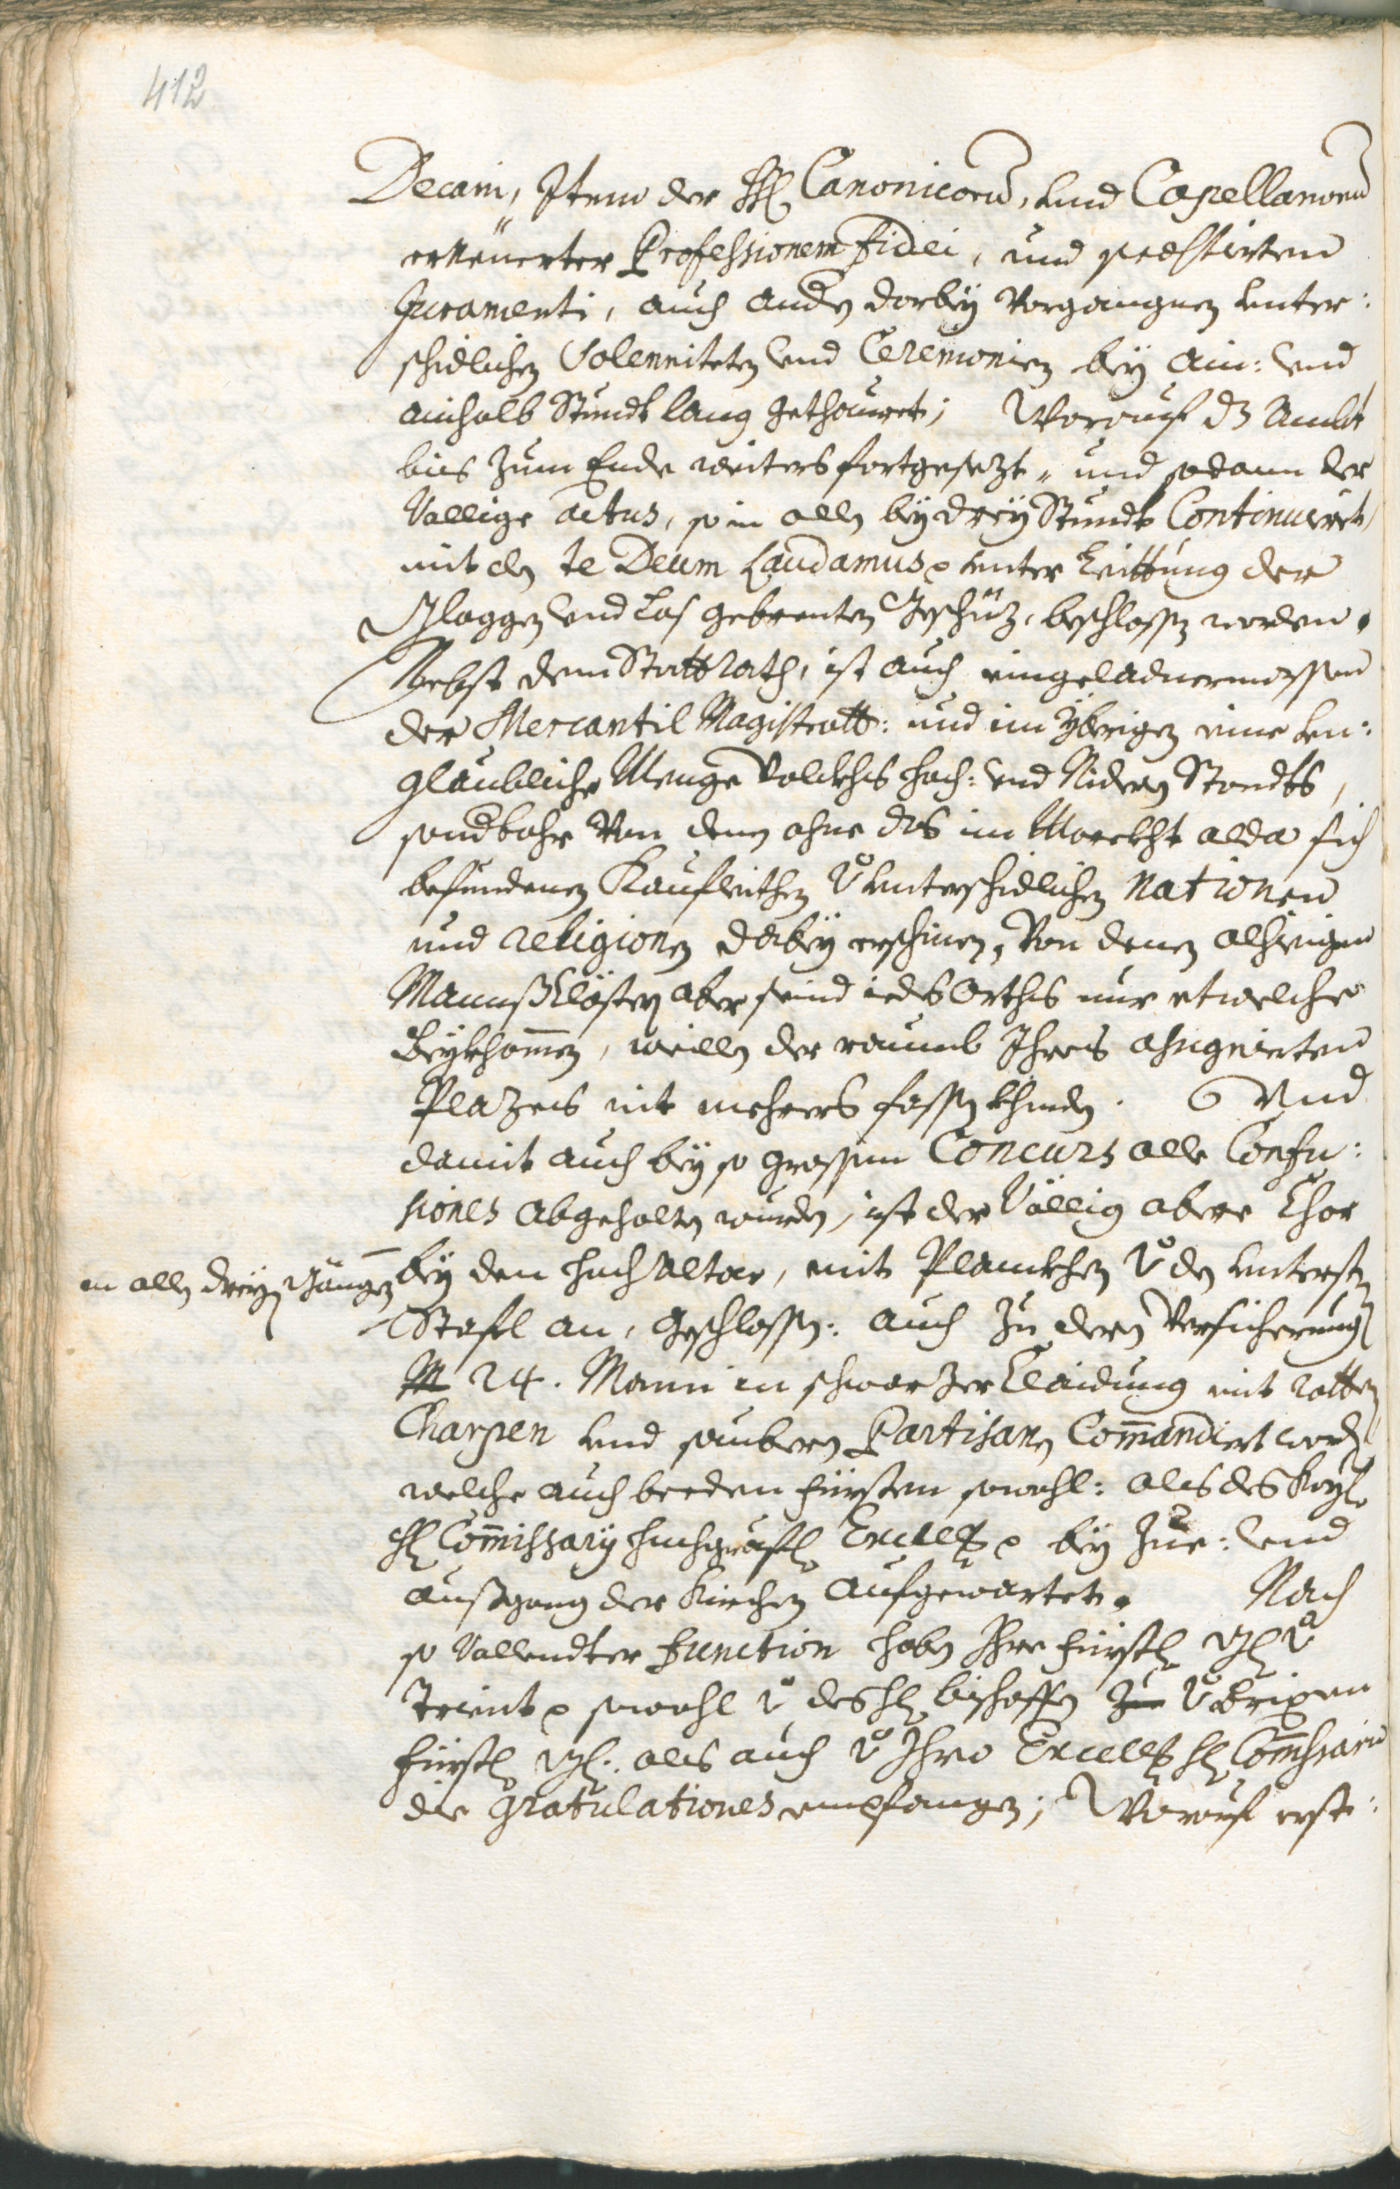 412
Decani, Item der HH. Canonicorum, und Capellanorum
erneuerter Professionem fidei, und præstirten
Juramenti, auch andern dorbey Vorgangnen unter:
schidlichen Solenniteten und Ceremonien bey ain: und
ainhalb Stundt lang gethauret; Worauf dz Ambt
bis zum Ende weiters fortgesezt, und sodann der
Vollige actus, so in allen bey drey Stundt Continuiret,
mit den te Deum Laudamus unter Leittung der
Gloggen und Los gebrenten Geschüz, beschlossen worden.
Nebst dem Stattrath, ist auch eingeladnermossen
der Mercantil Magistratt: und im ÿbrigen eine un:
glaubliche Menge Volckhs hoch: und Nidern Standts,
sondbahr Von denen ohne das im Marckht alda sich
befundenen Kaufleithen Von unterschidlichen Nationen
und religionen dabey erschinen, Von denen alhieigen
Mannßklöstern aber seind iedes Orthes nur etwelche
Beykhommen, weillen der raumb Ihres assignierten
Plazes nit mehrers fassen khinden. Und
damit auch bey so grossem Concurs alle Confu:
siones abgehalten wurden, ist der Völlig obere Chor
in allen dreyen Gängen
bey den Hoch Altar, mit Planckhen Von den untersten
Stafl an, geschlossen: auch zu deren Versicherung
24. Mann in schwarzer Klaidung mit rotten
Charpen und saubern Partisanen Commandiert worden
welche auch beeden Fürsten sowohl: als des Kayl.
H. Commissary Hochgräfl. Excell. bey Zue: und
Außgang der Kirchen aufgewartet. Nach
so Vollendter function haben Ihre Fürstl. Gl. Von
Trient sowohl Von des H. bischoffen Von Brixen
Fürstl. Gl. als auch Von Ihro Excell. H. Commissario
die Gratulationes empfangen; Worauf erst: